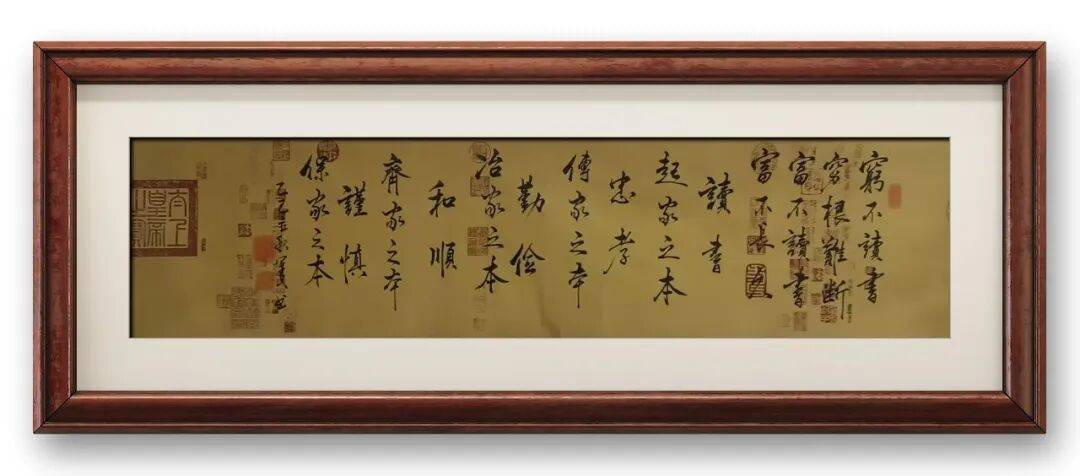 窮不讀書
穷根難断
富不讀書
富不長
讀書
起家之本
忠孝
傳家之本
勤儉
治家之本
和順
齊家之本
謹慎
保家之本
太上
皇帝
之寶